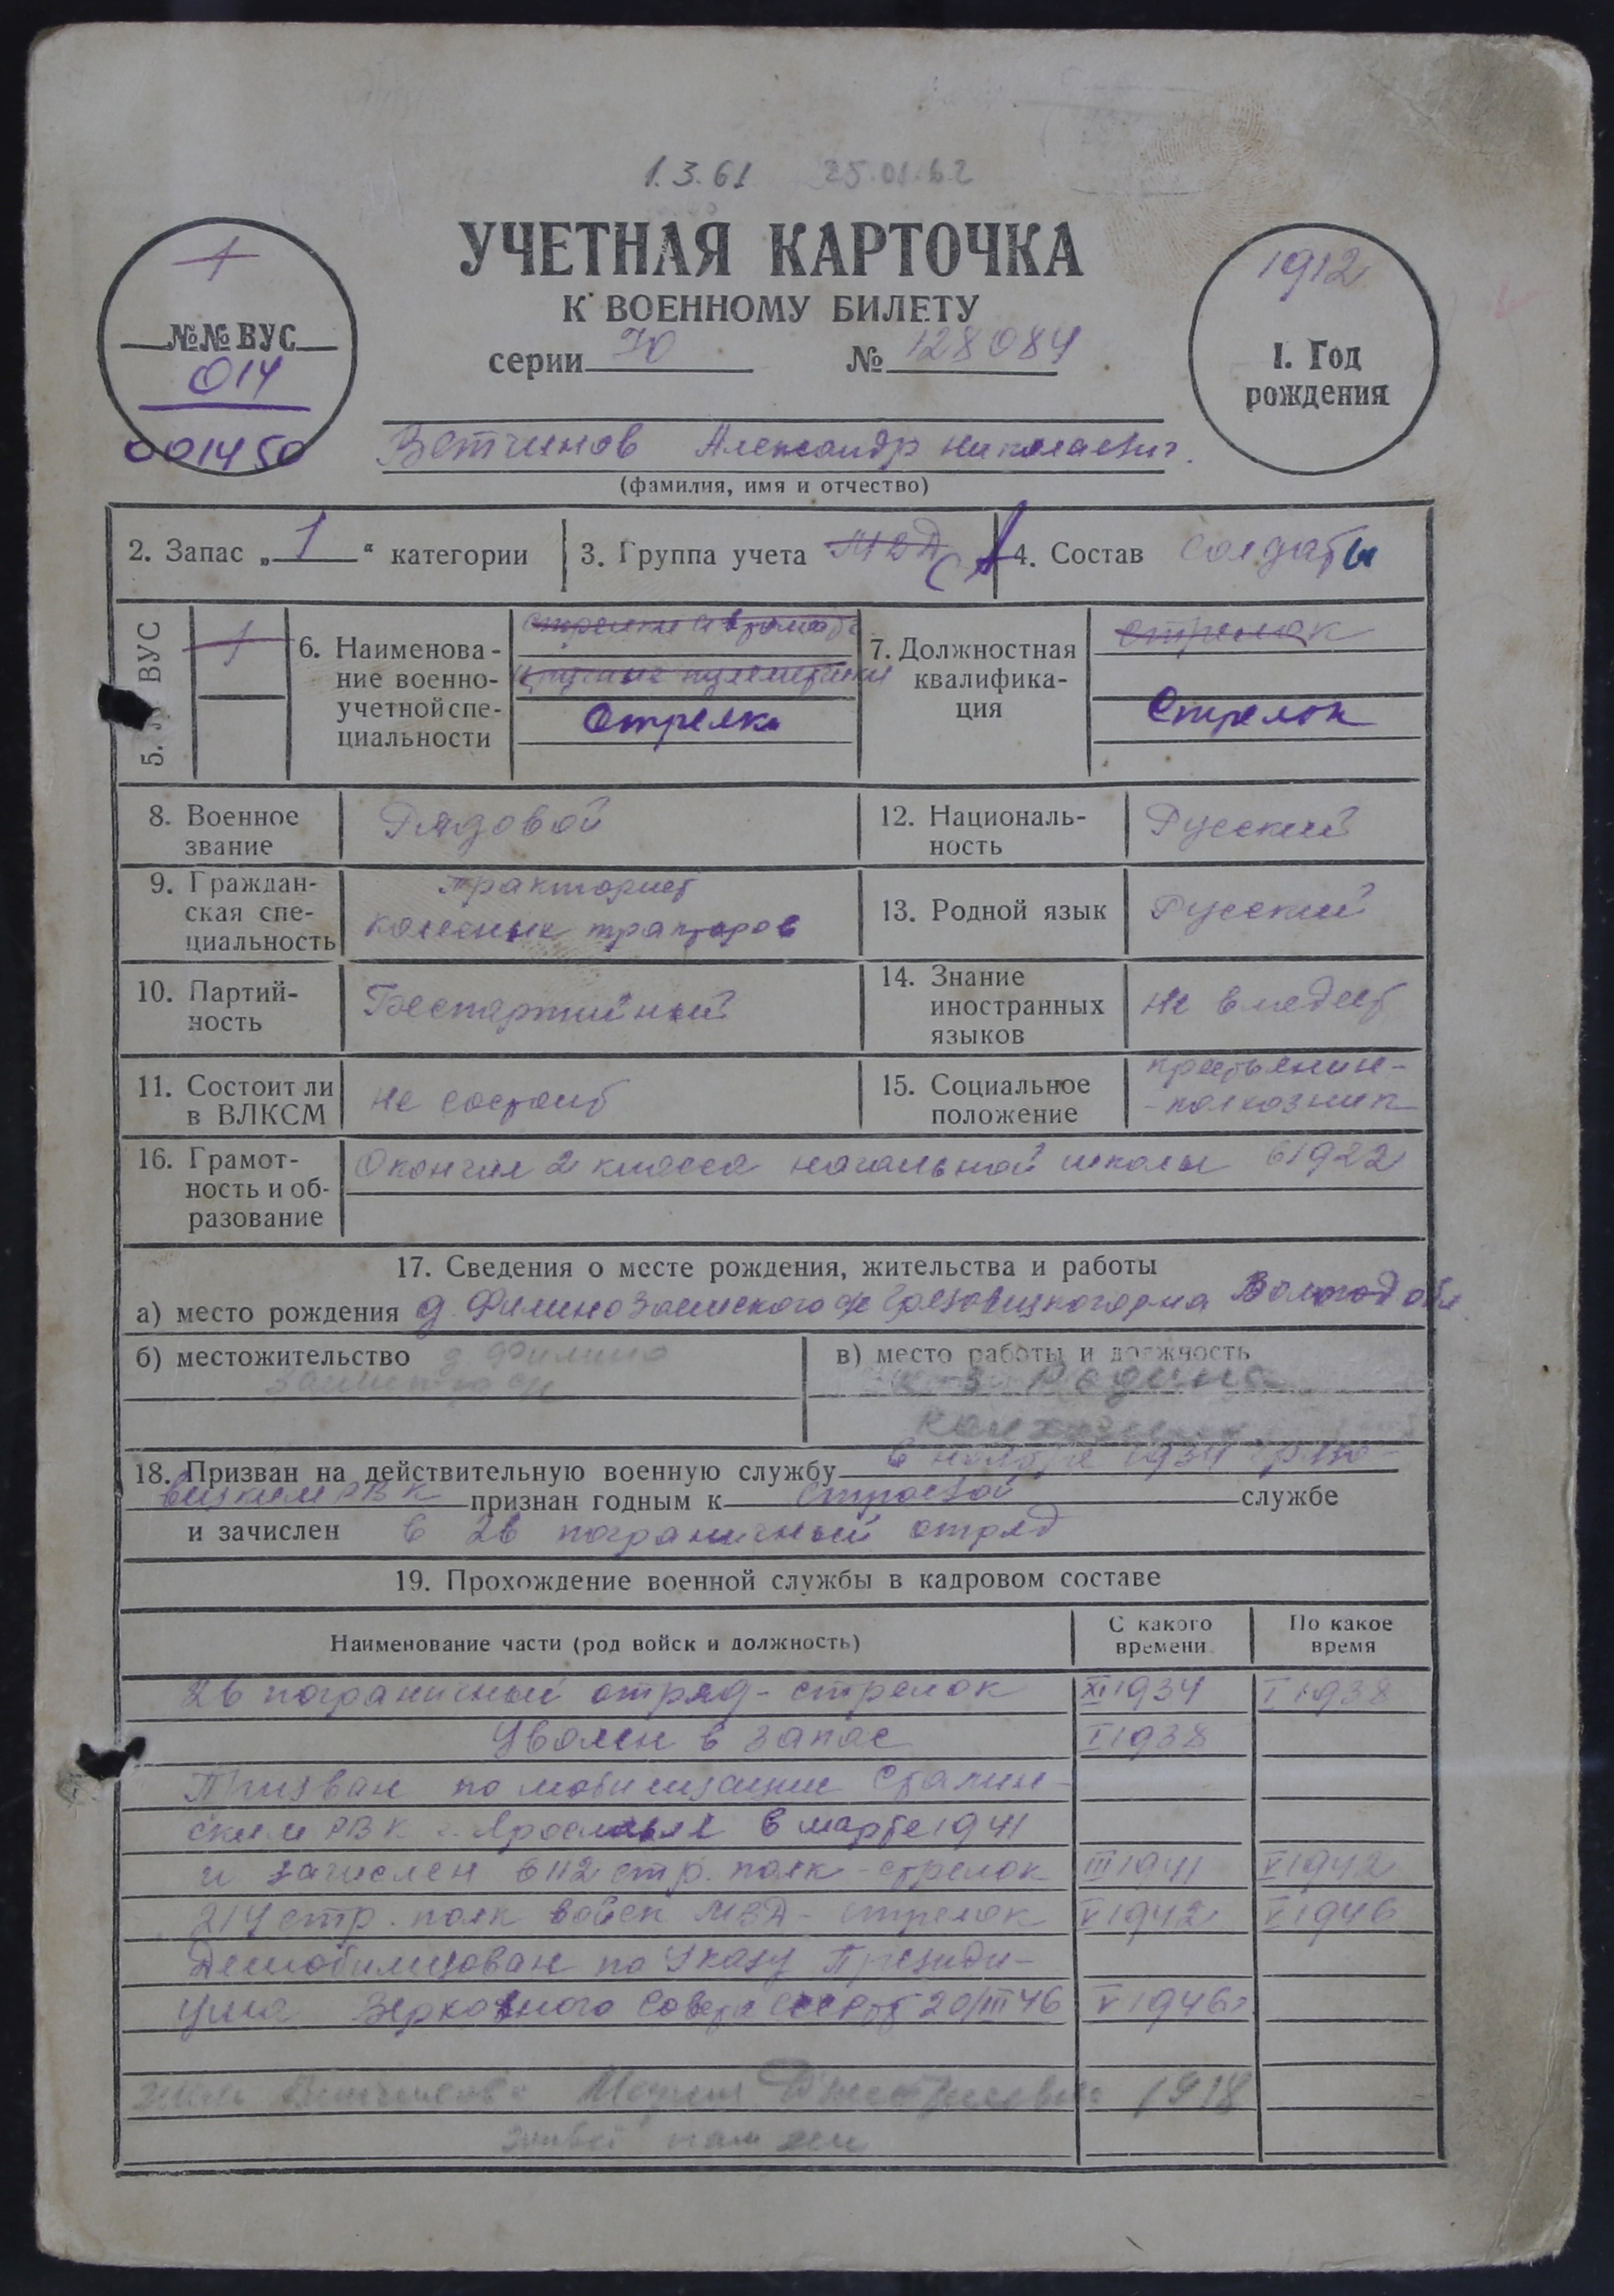 1.3.61 25.01.62
УЧЕТНАЯ КАРТОЧКА
К ВОЕННОМУ БИЛЕТУ
серии № 128084
1
№№ ВУС
014
001450
1912
1. Год
рождения
Ветчинов Александр Николаевич.
(фамилия, имя и отчество)
2. Запас „1“ категории
3. Группа учета МВД СА
4. Состав солдаты
5. № ВУС
1
6. Наименова-
ние военно-
учетной спе-
циальности
Стрелки
7. Должностная
квалифика-
ция
стрелок
Стрелок
8. Военное
звание
Рядовой
12. Националь-
ность
Русский
9. Граждан-
ская спе-
циальность
тракторист
колесных тракторов
13. Родной язык
Русский
10. Партий-
ность
Беспартийный
14. Знание
иностранных
языков
не владеет
11. Состоит ли
в ВЛКСМ
не состоит
15. Социальное
положение
крестьянин-
-колхозник
16. Грамот-
ность и об-
разование
Окончил 2 класса начальной школы в 1922
17. Сведения о месте рождения, жительства и работы
а) место рождения д. Филино р-на Вологод обл
б) местожительство д Филино
в) место работы и должность
к-з Родина
колхозник
18. Призван на действительную военную службу в ноябре 1934 Грязо-
вецким РВК признан годным к строевой службе
и зачислен в 26 пограничный отряд
19. Прохождение военной службы в кадровом составе
Наименование части (род войск и должность)
С какого
времени
По какое
время
26 пограничный отряд - стрелок XI 1934 I 1938
Уволен в запас I 1938
Призван по мобилизации Сталин-
ским РВК г. Ярославля в марте 1941
и зачислен в 112 стр. полк - стрелок III 1941 V 1942
214 стр. полк войск МВД - стрелок V 1942 V 1946
Демобилизован по Указу Президи-
ума Верховного Совета СССР от 20/III 46 V 1946г
жена Ветчинова Мария Дмитриевна 1918